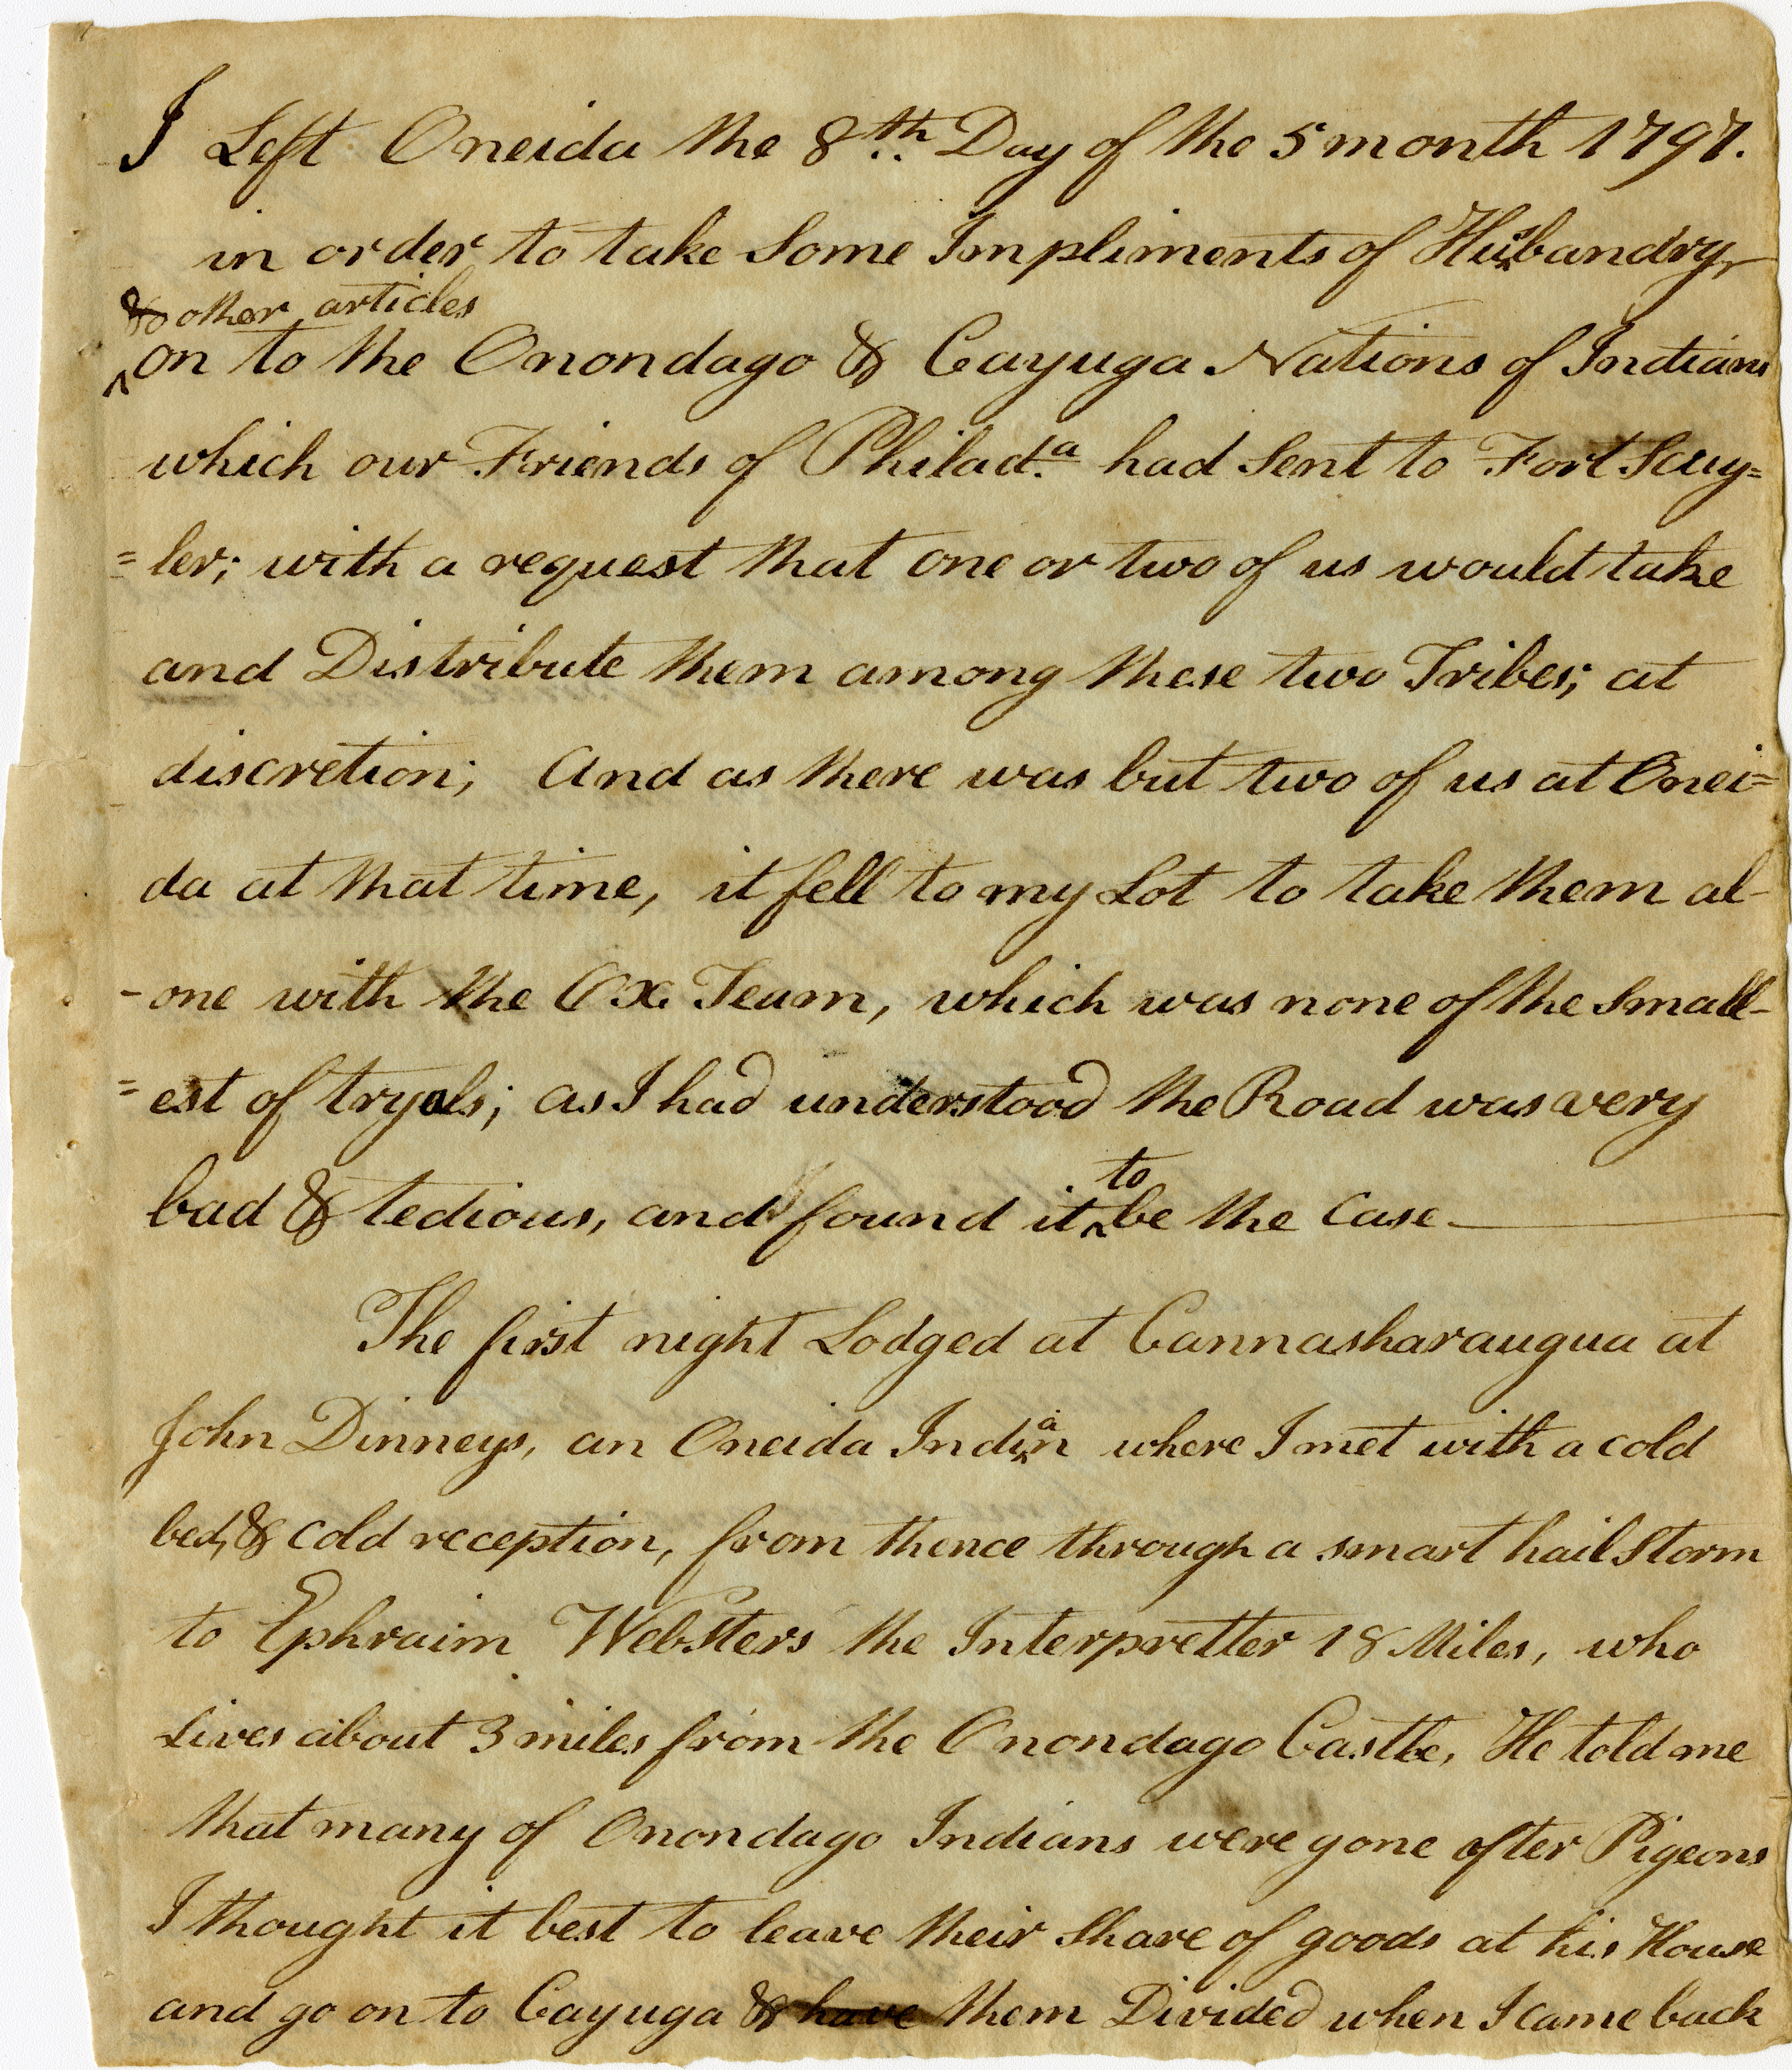 I Left Oneida the 8th Day of the 5 month 1797.
in order to take Some Impliments of Husbandry,
& other articles
on to the Onondago & Cayuga Nations of Indians
which our Friends of Philada had Sent to Fort Scuy=
=ler; with a request that one or two of us would take
and Distribute them among these two Tribes; at
discretion; And as there was but two of us at Onei=
da at that time, it fell to my Lot to take them al-
-one with the Ox Team, which was none of the Small-
=est of tryals; as I had understood the Road was very
bad & tedious, and found it to be the Case
The first night Lodged at Cannasharaugua at
John Dinneys, an Oneida Indian where I met with a cold
bed, & cold reception, from thence through a smart hail Storm
to Ephraim Websters the Interpretter 18 Miles, who
Lives about 3 miles from the Onondago Castle, He told me
that many of Onondago Indians were gone after Pigeons
I thought it best to leave their Share of goods at his House
and go on to Cayuga & have them Divided when I came back